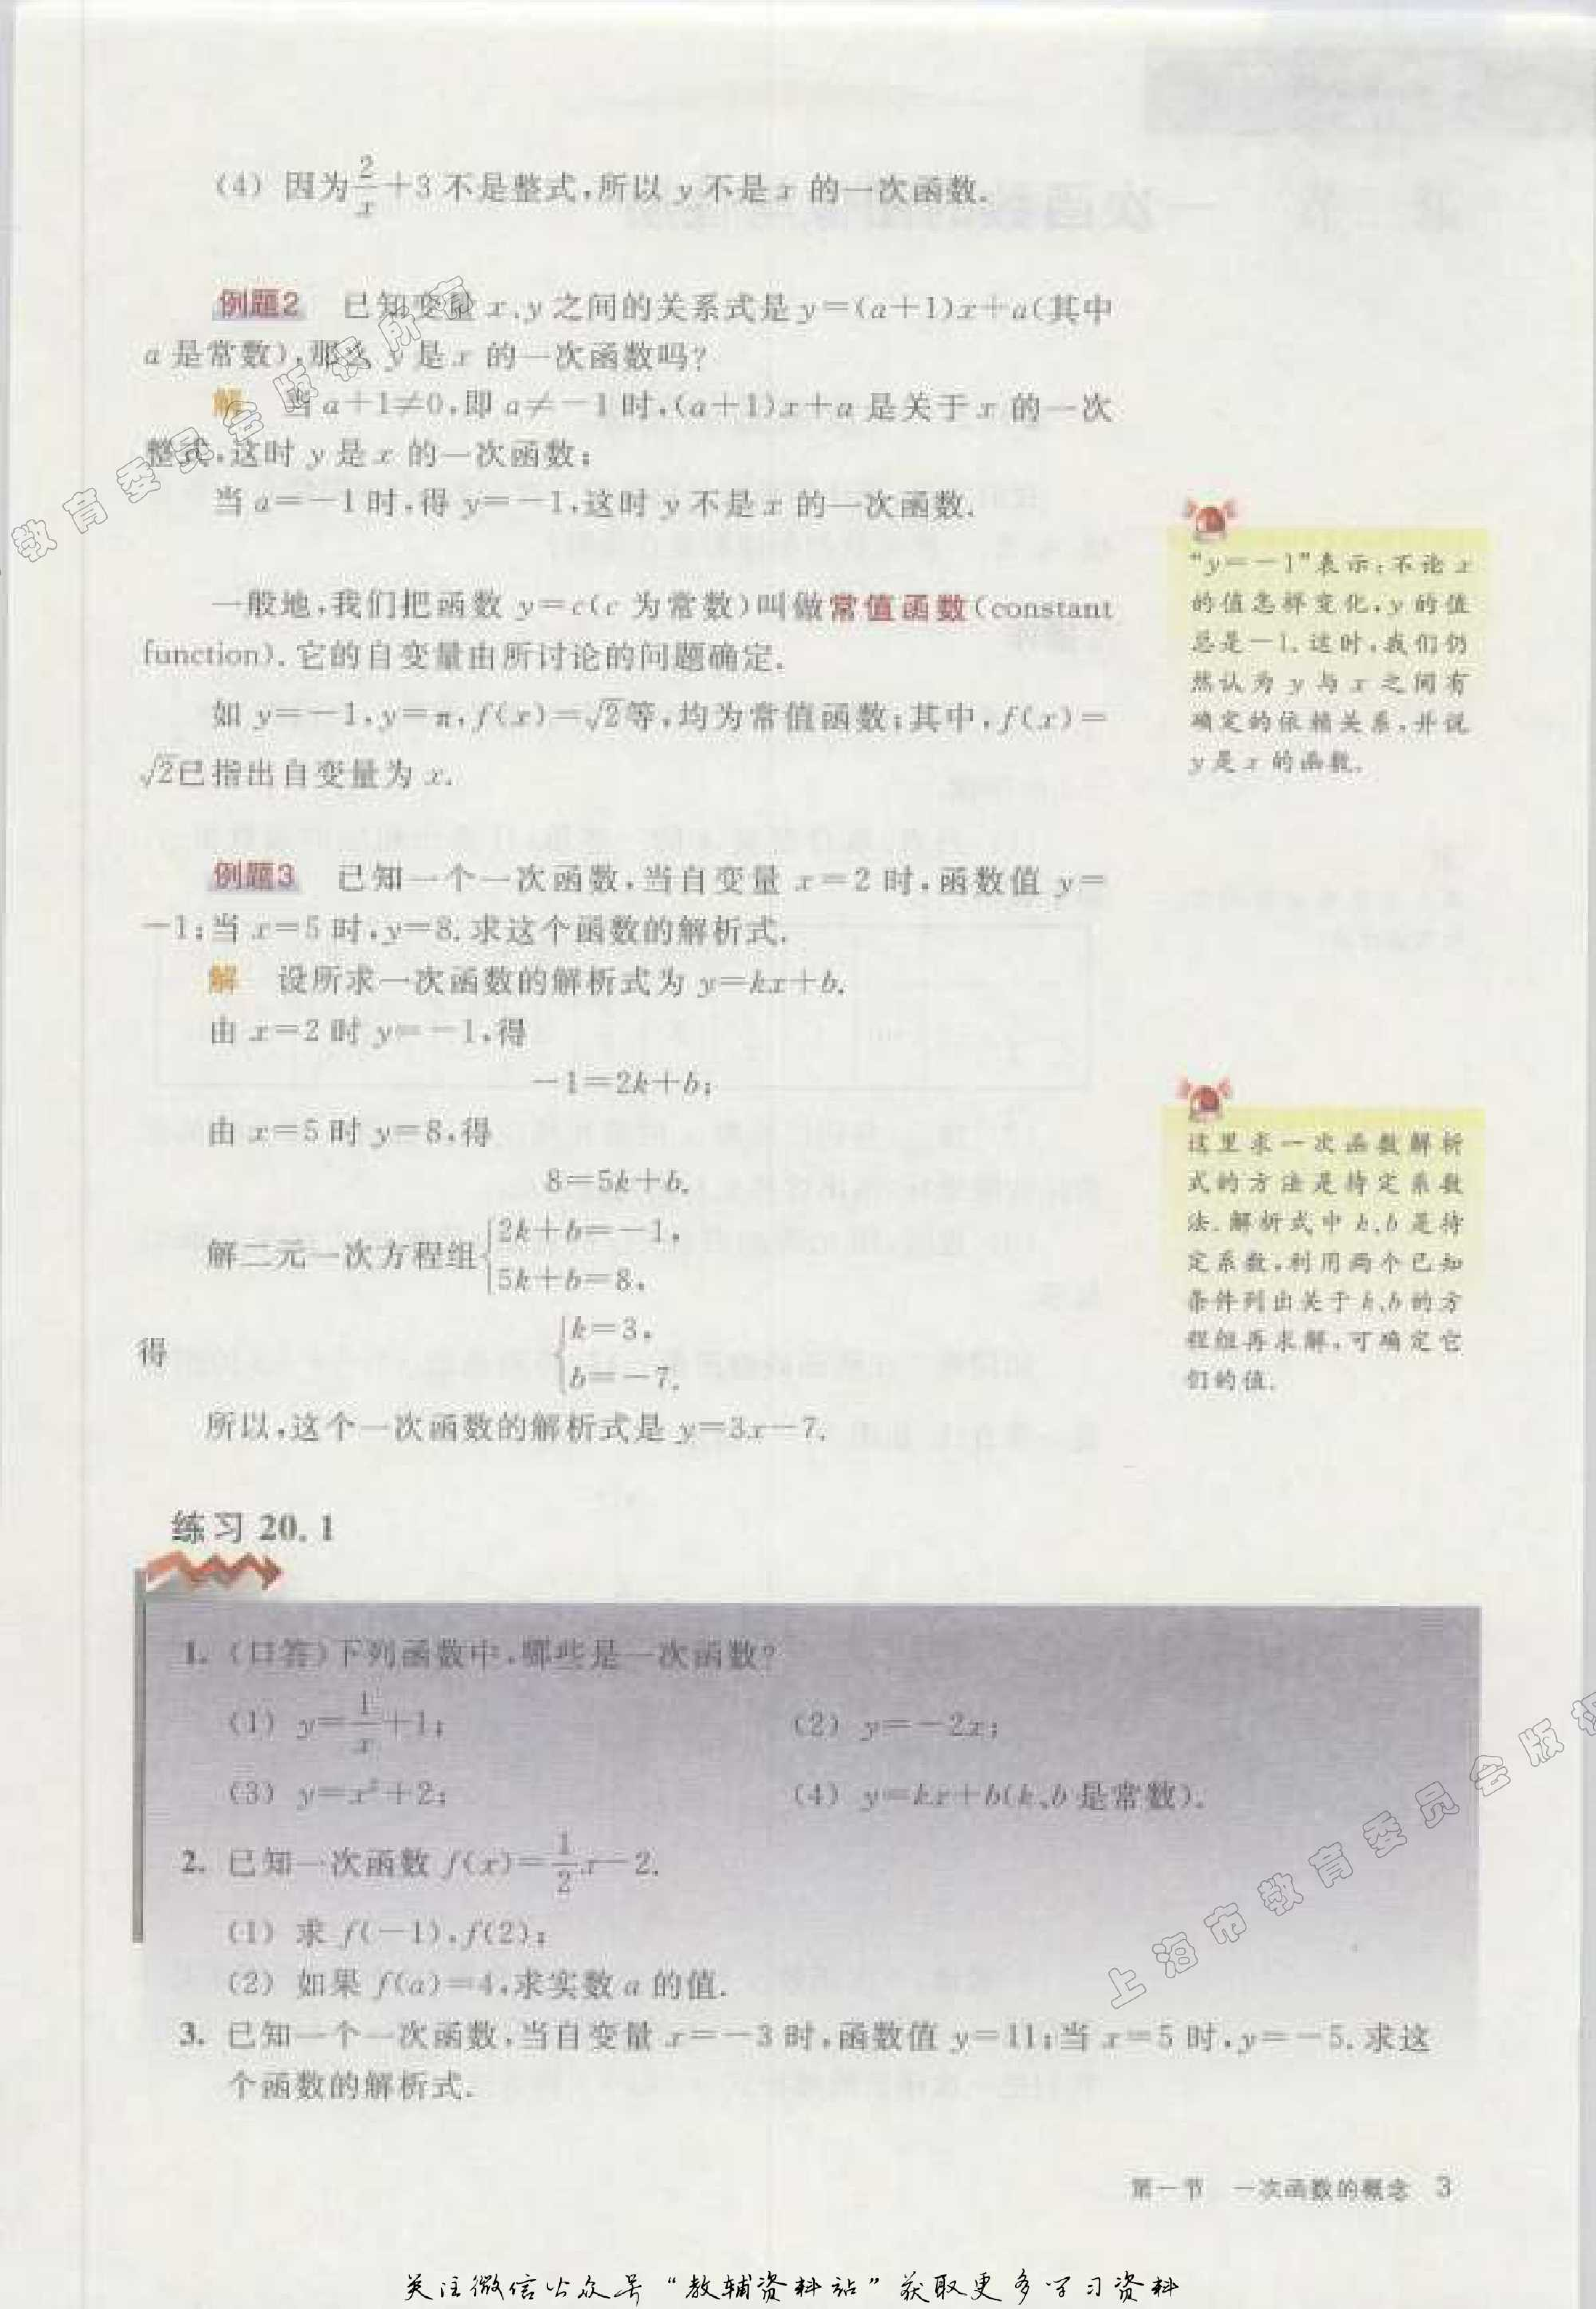 (4) 因为2/x+3不是整式,所以 y 不是 x 的一次函数.
例题2 已知变量 x、y 之间的关系式是 y=(a+1)x+a(其中
a 是常数),那么 y 是 x 的一次函数吗?
解 当 a+1≠0,即 a≠-1 时,(a+1)x+a 是关于 x 的一次
整式,这时 y 是 x 的一次函数;
当 a=-1 时,得 y=-1,这时 y 不是 x 的一次函数.
一般地,我们把函数 y=c(c 为常数)叫做常值函数(constant
function).它的自变量由所讨论的问题确定.
如 y=-1,y=π,f(x)=√2等,均为常值函数;其中,f(x)=
√2已指出自变量为 x.
“y=-1”表示:不论 x
的值怎样变化,y 的值
总是-1.这时,我们仍
然认为 y 与 x 之间有
确定的依赖关系,并说
y 是 x 的函数.
例题3 已知一个一次函数,当自变量 x=2 时,函数值 y=
-1;当 x=5 时,y=8.求这个函数的解析式.
解 设所求一次函数的解析式为 y=kx+b.
由 x=2 时 y=-1,得
-1=2k+b;
由 x=5 时 y=8,得
8=5k+b.
解二元一次方程组{2k+b=-1,
5k+b=8,
得 {k=3,
b=-7.
所以,这个一次函数的解析式是 y=3x-7.
这里求一次函数解析
式的方法是待定系数
法.解析式中 k、b 是待
定系数,利用两个已知
条件列出关于 k、b 的方
程组再求解,可确定它
们的值.
练习 20.1
1. (口答)下列函数中,哪些是一次函数?
(1) y=1/x+1; (2) y=-2x;
(3) y=x²+2; (4) y=kx+b(k、b 是常数).
2. 已知一次函数 f(x)=1/2x-2.
(1) 求 f(-1),f(2);
(2) 如果 f(a)=4,求实数 a 的值.
3. 已知一个一次函数,当自变量 x=-3 时,函数值 y=11;当 x=5 时,y=-5.求这
个函数的解析式.
第一节 一次函数的概念 3
教育委员会版权所有
上海市教育委员会版权
关注微信公众号“教辅资料站”获取更多学习资料